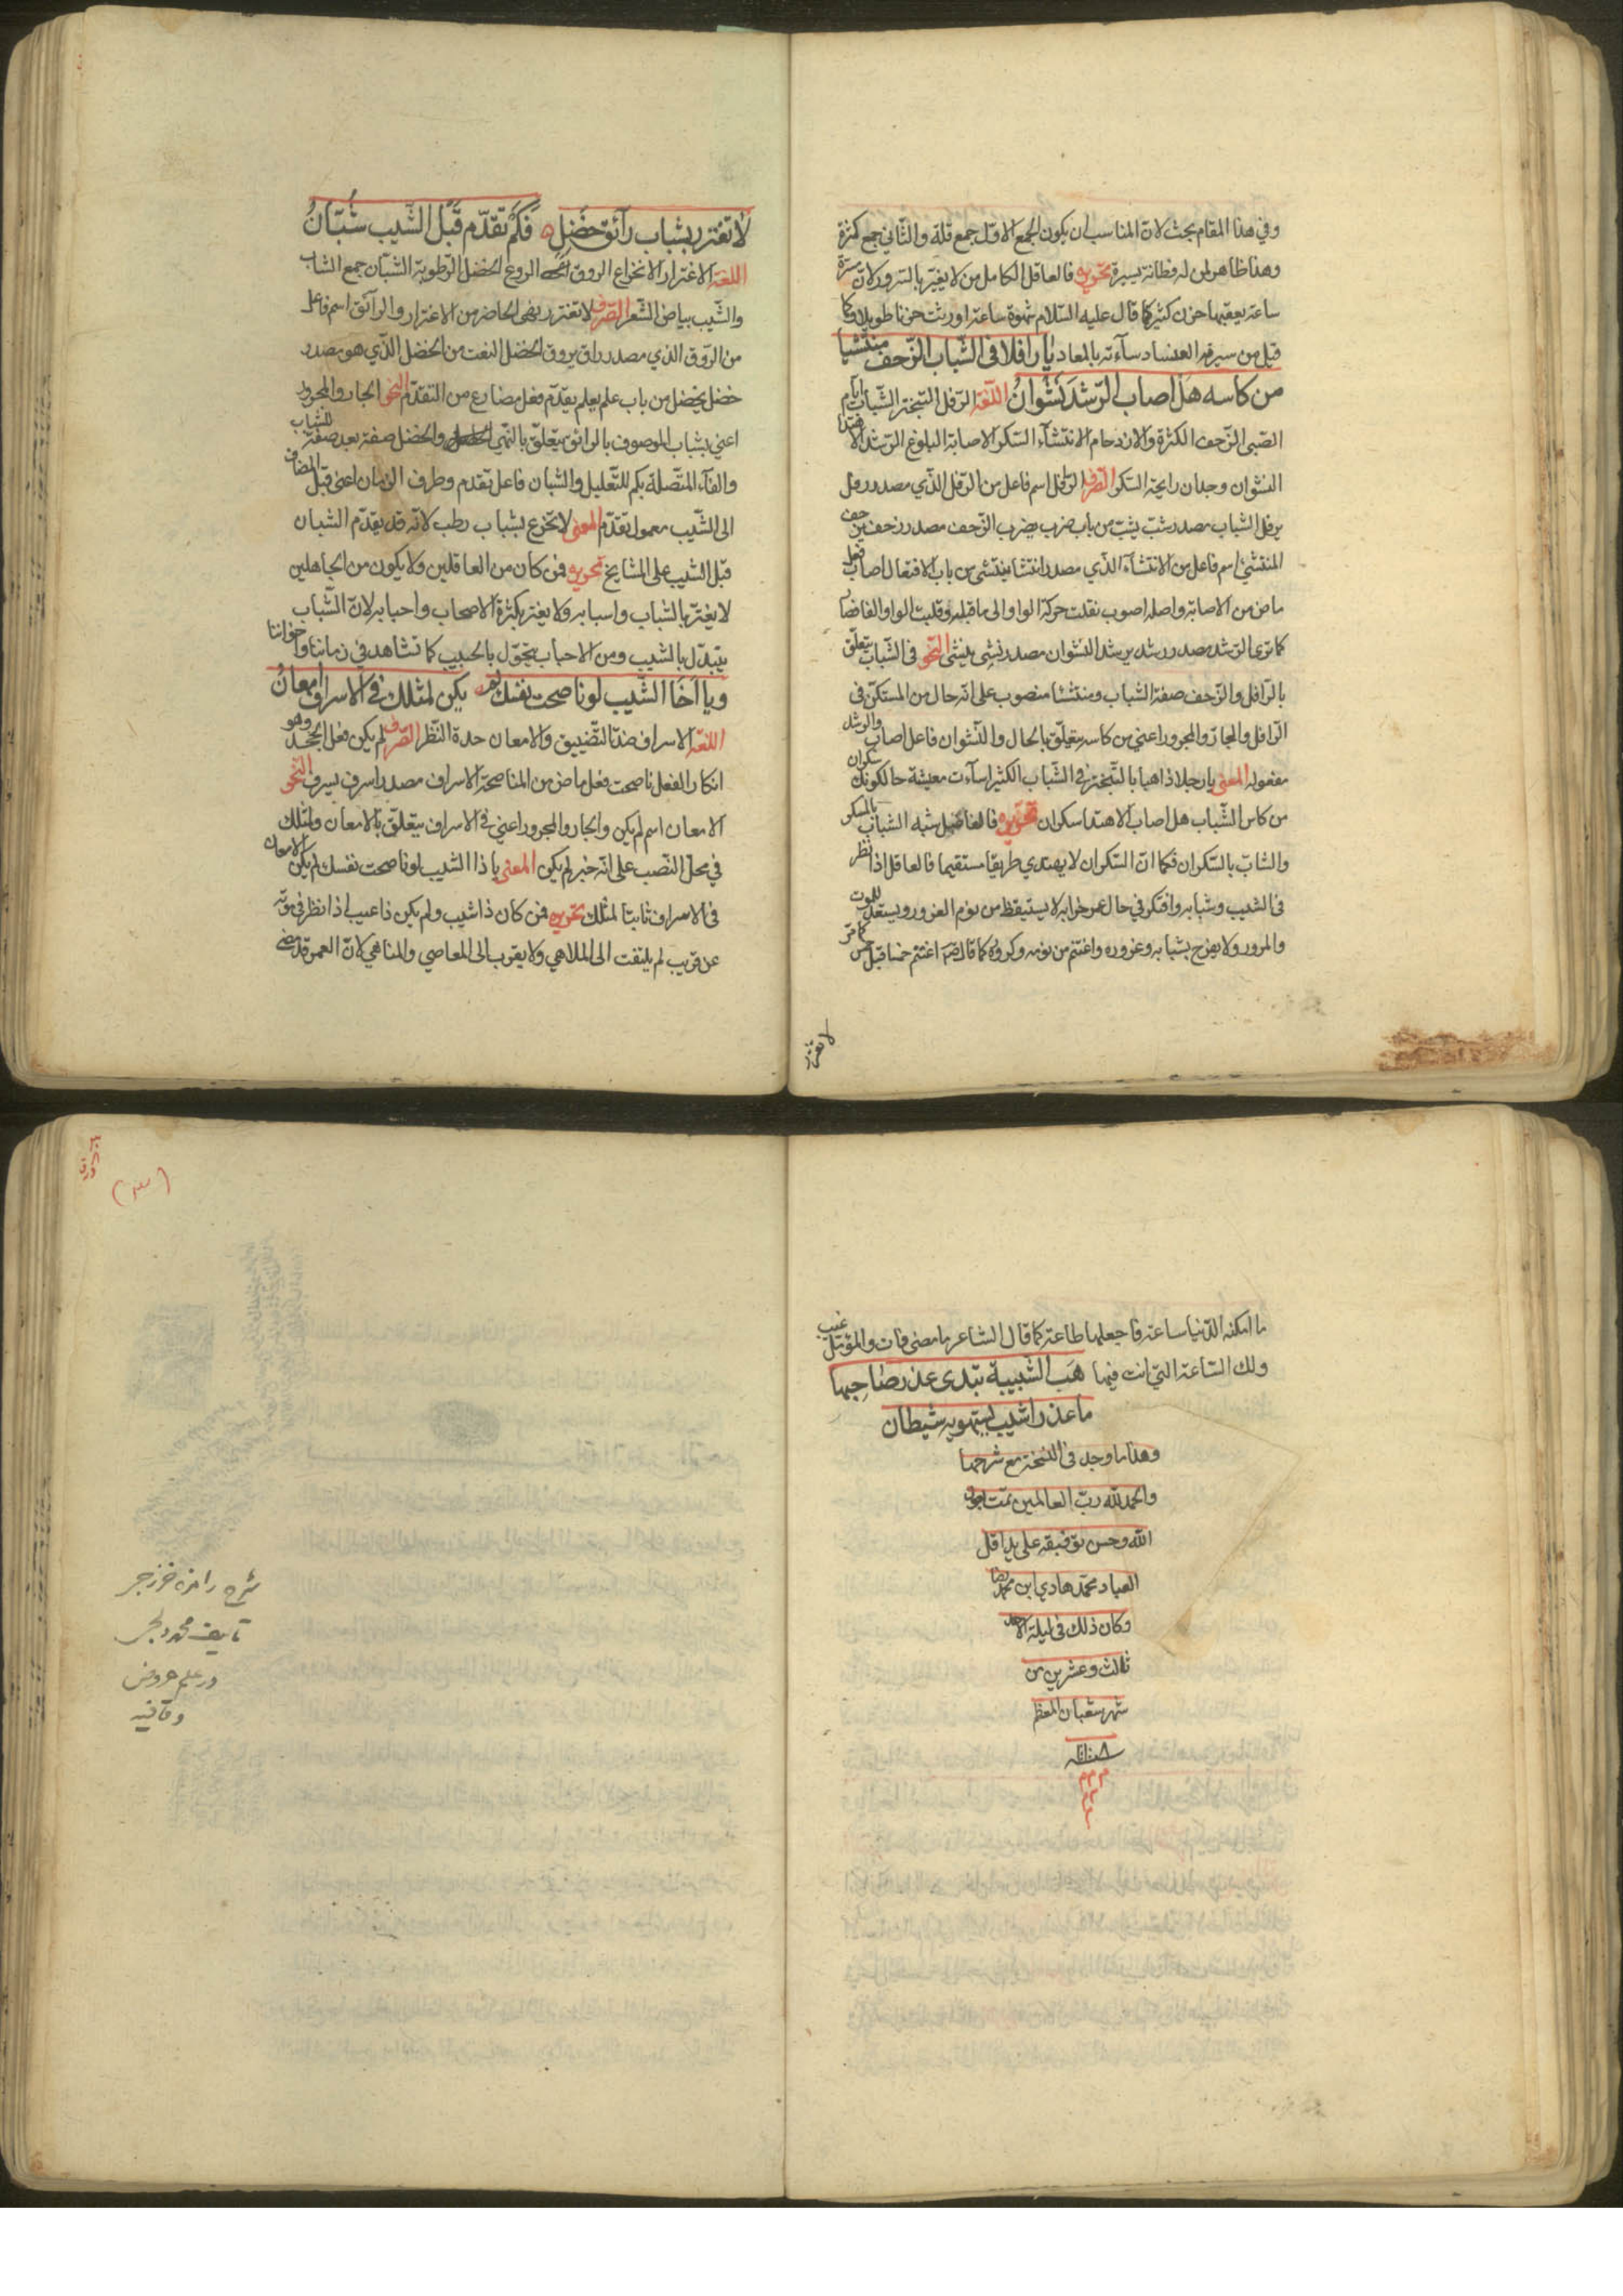 وفي هذا المقام بحث لان المناسب ان يكون الجمع الاول جمع قلة والثاني جمع كثرة
وهذا ظاهر لمن له فطانة يسيرة تحريره فالعاقل الكامل من لا يغتر بالسرور لان مسرة
ساعة يعقبها حزن كثير كما قال عليه السلام شهوة ساعة اورثت حزنا طويلا وكما
قيل من سره الفساد ساءته بالمعاد يا رافلا في الشباب الزحف منتشيا
من كاسه هل اصاب الرشد نشوان اللغة الرفل التبختر الشباب ايام
الصبى الزحف الكثرة والازدحام الانتشاء السكر الاصابة البلوغ الرشد الاهتداء
النشوان وجدان رايحة السكر الصرف الرافل اسم فاعل من الرفل الذي مصدر رفل
يرفل الشباب مصدر شب يشب من باب ضرب يضرب الزحف مصدر زحف يزحف
المنتشئ اسم فاعل من الانتشاء الذي مصدر انتشا ينتشي من باب الافتعال اصاب فعل
ماض من الاصابة واصله اصوب نقلت حركة الواو الى ما قبله وقلبت الواو الفا فصار
كما ترى الرشد مصدر رشد يرشد النشوان مصدر نشي ينشي النحو في الشباب يتعلق
بالرافل والزحف صفة الشباب ومنتشئا منصوب على انه حال من المستكن في
الرافل والجار والمجرور اعني من كاسه يتعلق بالحال والنشوان فاعل اصاب والرشد
مفعوله المعنى يا رجلا ذاهبا بالتبختر في الشباب الكثير اساءت معيشة حالكونك سكران
من كاس الشباب هل اصاب الاهتدا سكران تحريره فالفاضل شبه الشباب بالسكر
والشاب بالسكران فكما ان السكران لا يهتدي طريقا مستقيما فالعاقل اذا نظر
في الشيب وشبابه وافتكر في حال عمر خرابه لا يستيقظ من نوم الغرور ويستعد للموت
والمرور ولا يفرح بشبابه وغروره واغتنم من نومه وكروه كما قال اغتنم خمسا قبل خمس كما مر
لا تغتر
لا تغترر بشباب رآئق خضل فكم تقدم قبل الشيب شبان
اللغة الاغترار الانخداع الروق الروع الخضل الرطوبة الشبان جمع الشاب
والشيب بياض الشعر الصرف لا تغترر نهي الحاضر من الاغترار والرائق اسم فاعل
من الروق الذي مصدر راق يروق الخضل النعت من الخضل الذي هو مصدر
خضل يخضل من باب علم يعلم يقدم فعل مضارع من التقدم النحو الجار والمجرور
اعني بشباب الموصوف بالرائق يتعلق بالنهي والخضل صفة بعد صفة للشباب
والفاء المتصلة بكم للتعليل والشبان فاعل تقدم وظرف الزمان اعني قبل المضاف
الى الشيب معمول تقدم المعنى لا تخدع بشباب رطب لانه قد يقدم الشبان
قبل الشيب على المشايخ تحريره فمن كان من العاقلين ولا يكون من الجاهلين
لا يغتر بالشباب واسبابه ولا يغتر بكثرة الاصحاب واحبابه لان الشباب
يتبدل بالشيب ومن الاحباب يتحول بالحبيب كما تشاهد في زماننا واخواننا
ويا اخا الشيب لو ناصحت نفسك لم يكن لمثلك في الاسراف امعان
اللغة الاسراف ضد التضييق والامعان حدة النظر الصرف لم يكن فعل الجحد وهو
انكار الفعل ناصحت فعل ماض من المناصحة الاسراف مصدر اسرف يسرف النحو
الامعان اسم لم يكن والجار والمجرور اعني في الاسراف يتعلق بالامعان ولمثلك
في محل النصب على انه خبر لم يكن المعنى يا ذا الشيب لو ناصحت نفسك لم يكن الامعان
في الاسراف ثابتا لمثلك تحريره فمن كان ذا شيب ولم يكن ذا عيب اذا نظر في موته
عن قريب لم يلتفت الى الملاهي ولا يقرب الى المعاصي والمناهي لان العمر قد مضى
ما امكنه الدنيا ساعة فاجعلها طاعة كما قال الشاعر ما مضى فات والمؤمل غيب
ولك الساعة التي انت فيها هب الشبيبة تبدى عذر صاحبها
ما عذر اشيب يستهويه شيطان
وهذا ما وجد في النسخة مع شرحها
والحمد لله رب العالمين تمت بعون
الله وحسن توفيقه على يد اقل
العباد محمد هادي ابن محمد رضا
وكان ذلك في ليلة الاحد
ثالث وعشرين من
شهر شعبان المعظم
م م م
م م
م
(٣)
شرح رامزه خزرجى
تاليف محمد
در علم عروض
وقافيه